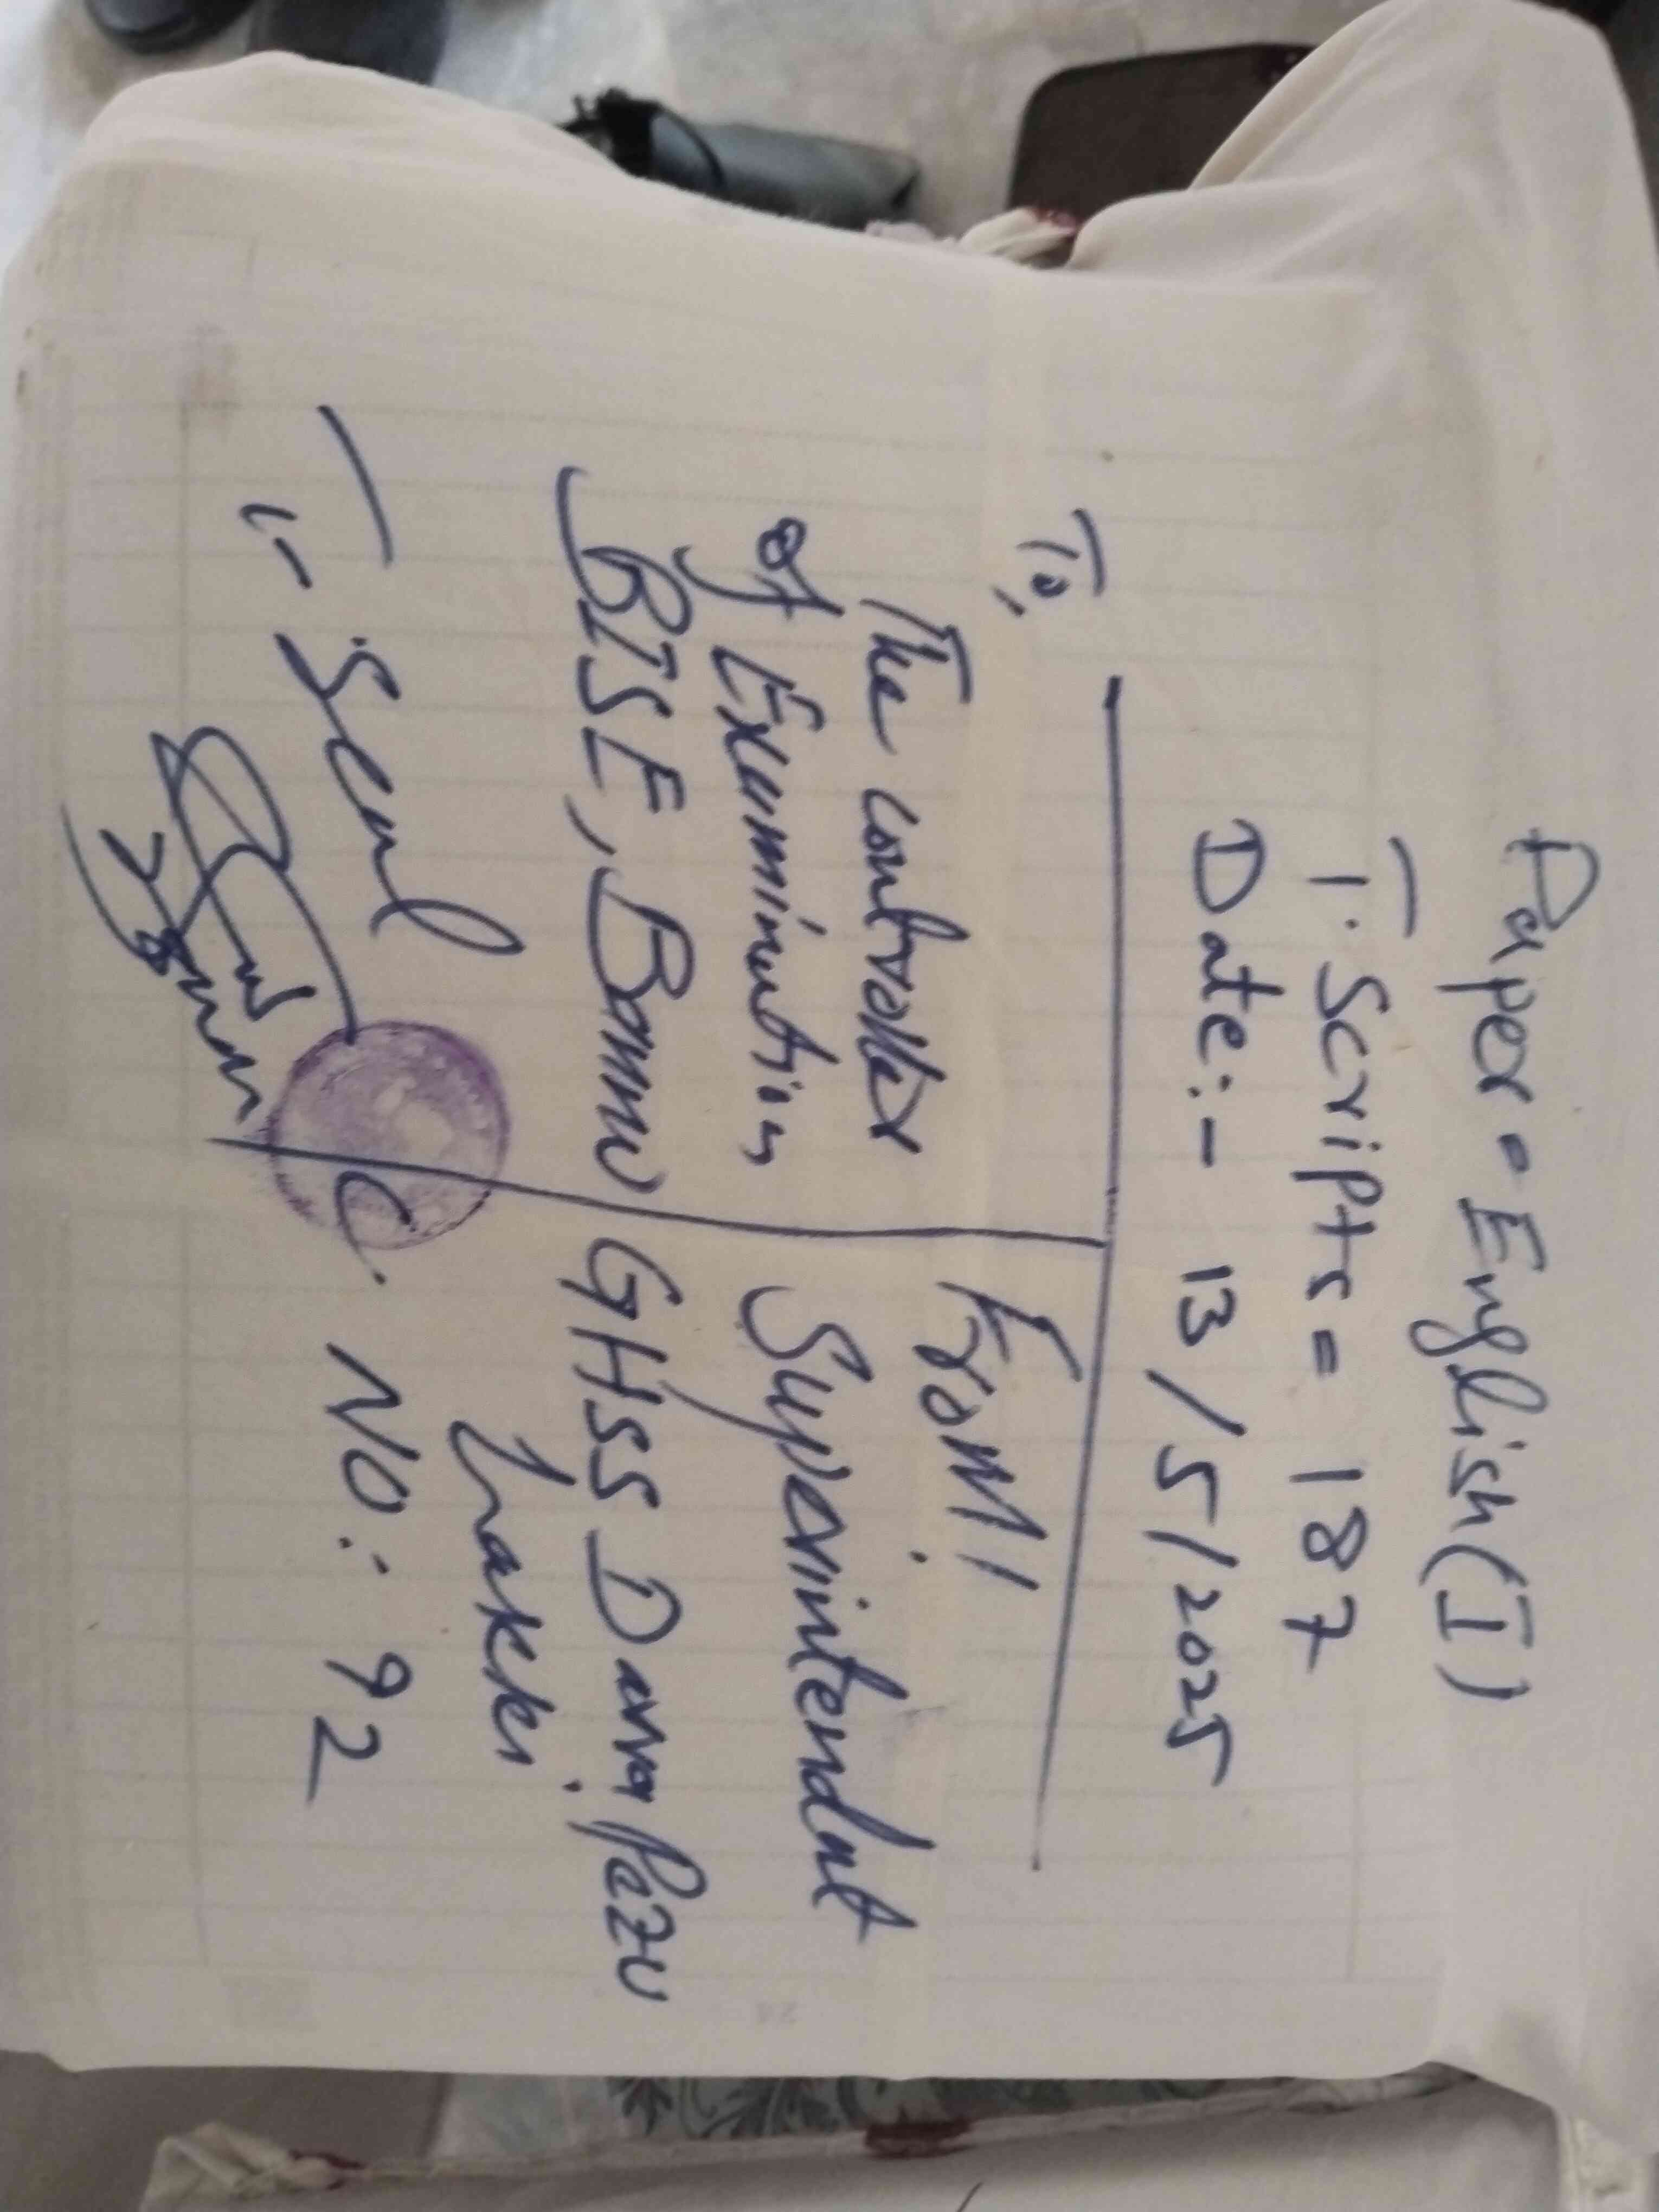 Paper = English (I)
T. Scripts = 187
Date:- 13/5/2025
To,
The controller
of Examination
BISE, Bannu
T- Seal
From!
Superintendent
GHSS Dara Pezu
Lakki
C. NO: 92